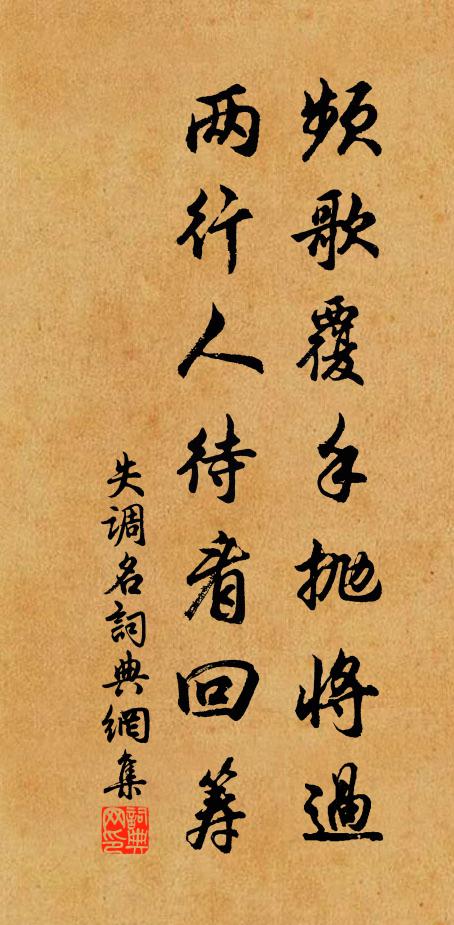 频歌覆手抛将過
两行人待看回筹
失调名詞典網集
詞典网印